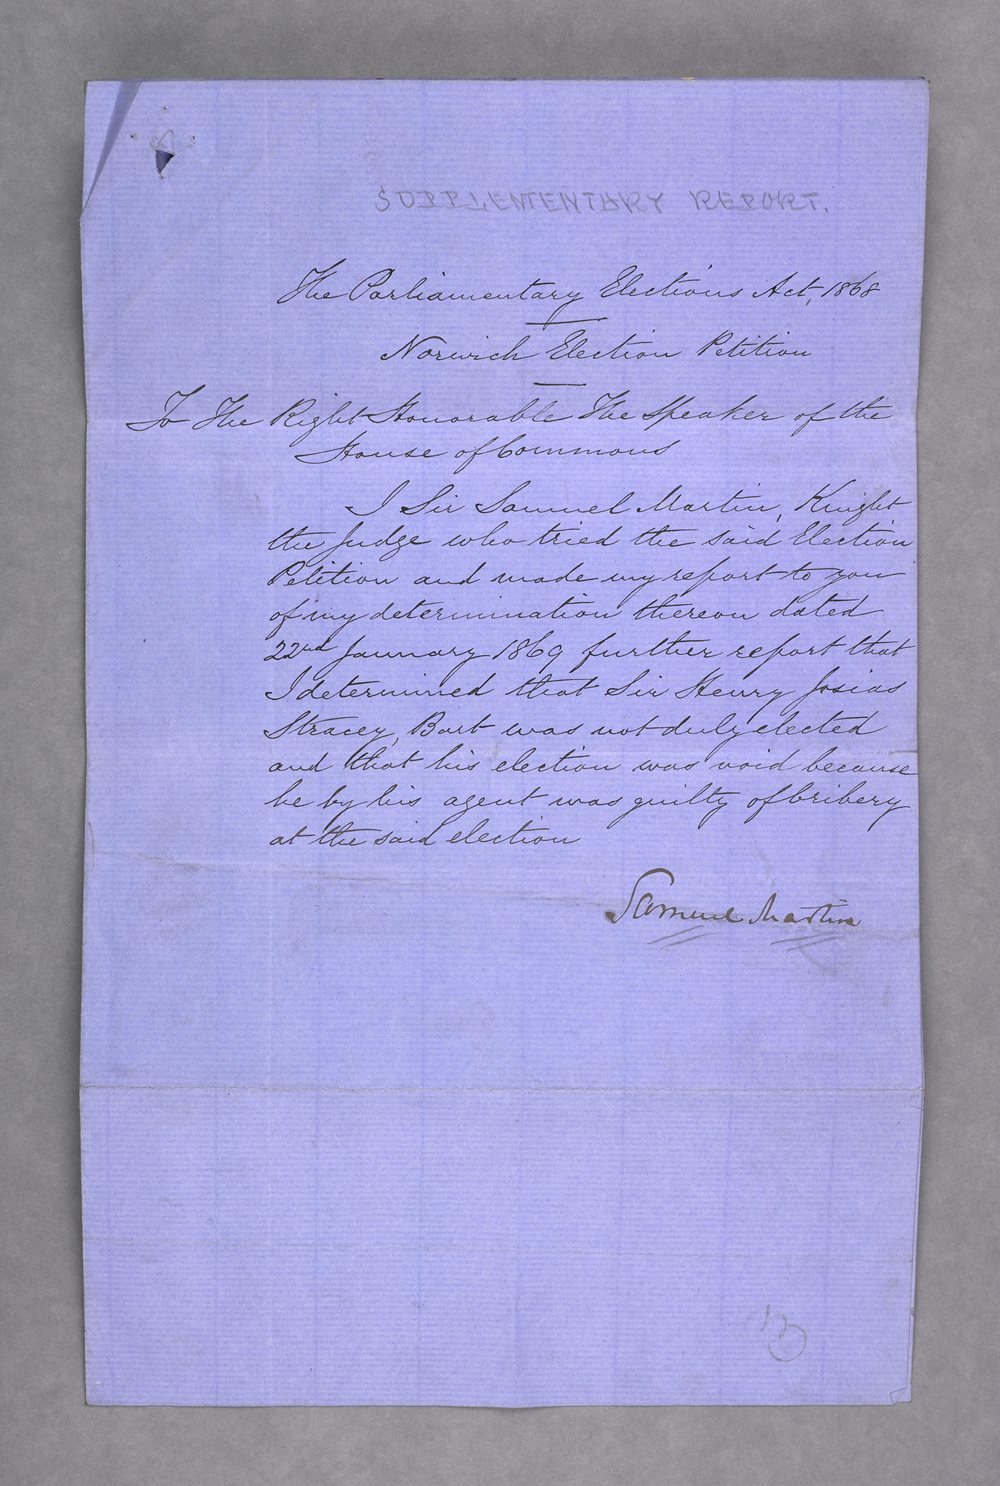 SUPPLEMENTARY REPORT.
The Parliamentary Elections Act, 1868
Norwich Election Petition
To The Right Honorable The Speaker of the
House of Commons
I Sir Samuel Martin, Knight
the Judge who tried the said Election
Petition and made my report to you
of my determination thereon dated
22nd January 1869 further report that
I determined that Sir Henry Josias
Stracey, Bart was not duly elected
and that his election was void because
he by his agent was guilty of bribery
at the said election
Samuel Martin